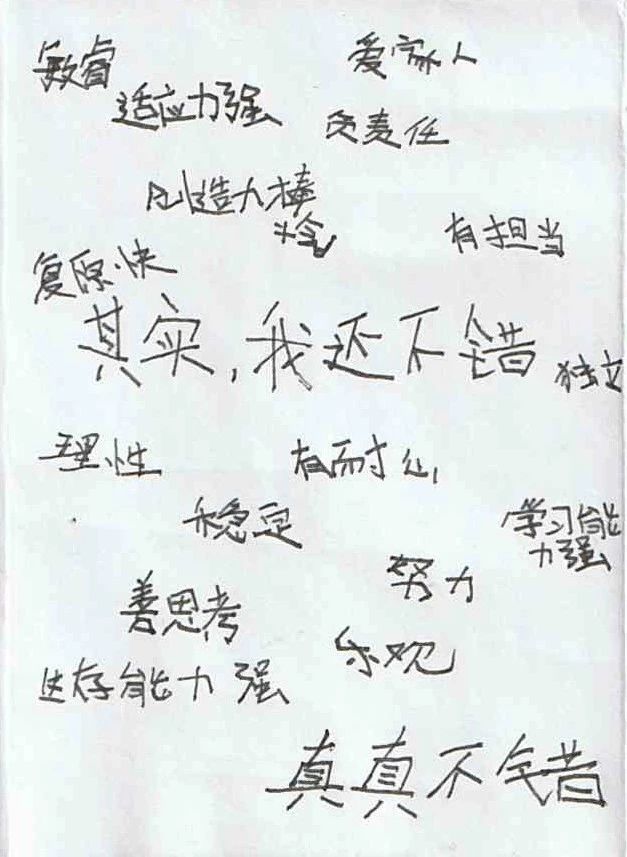 敏睿
爱家人
适应力强
负责任
创造力棒
有担当
复原快
其实，我还不错
独立
理性
有耐心
稳定
学习能
力强
努力
善思考
乐观
生存能力强
真真不错